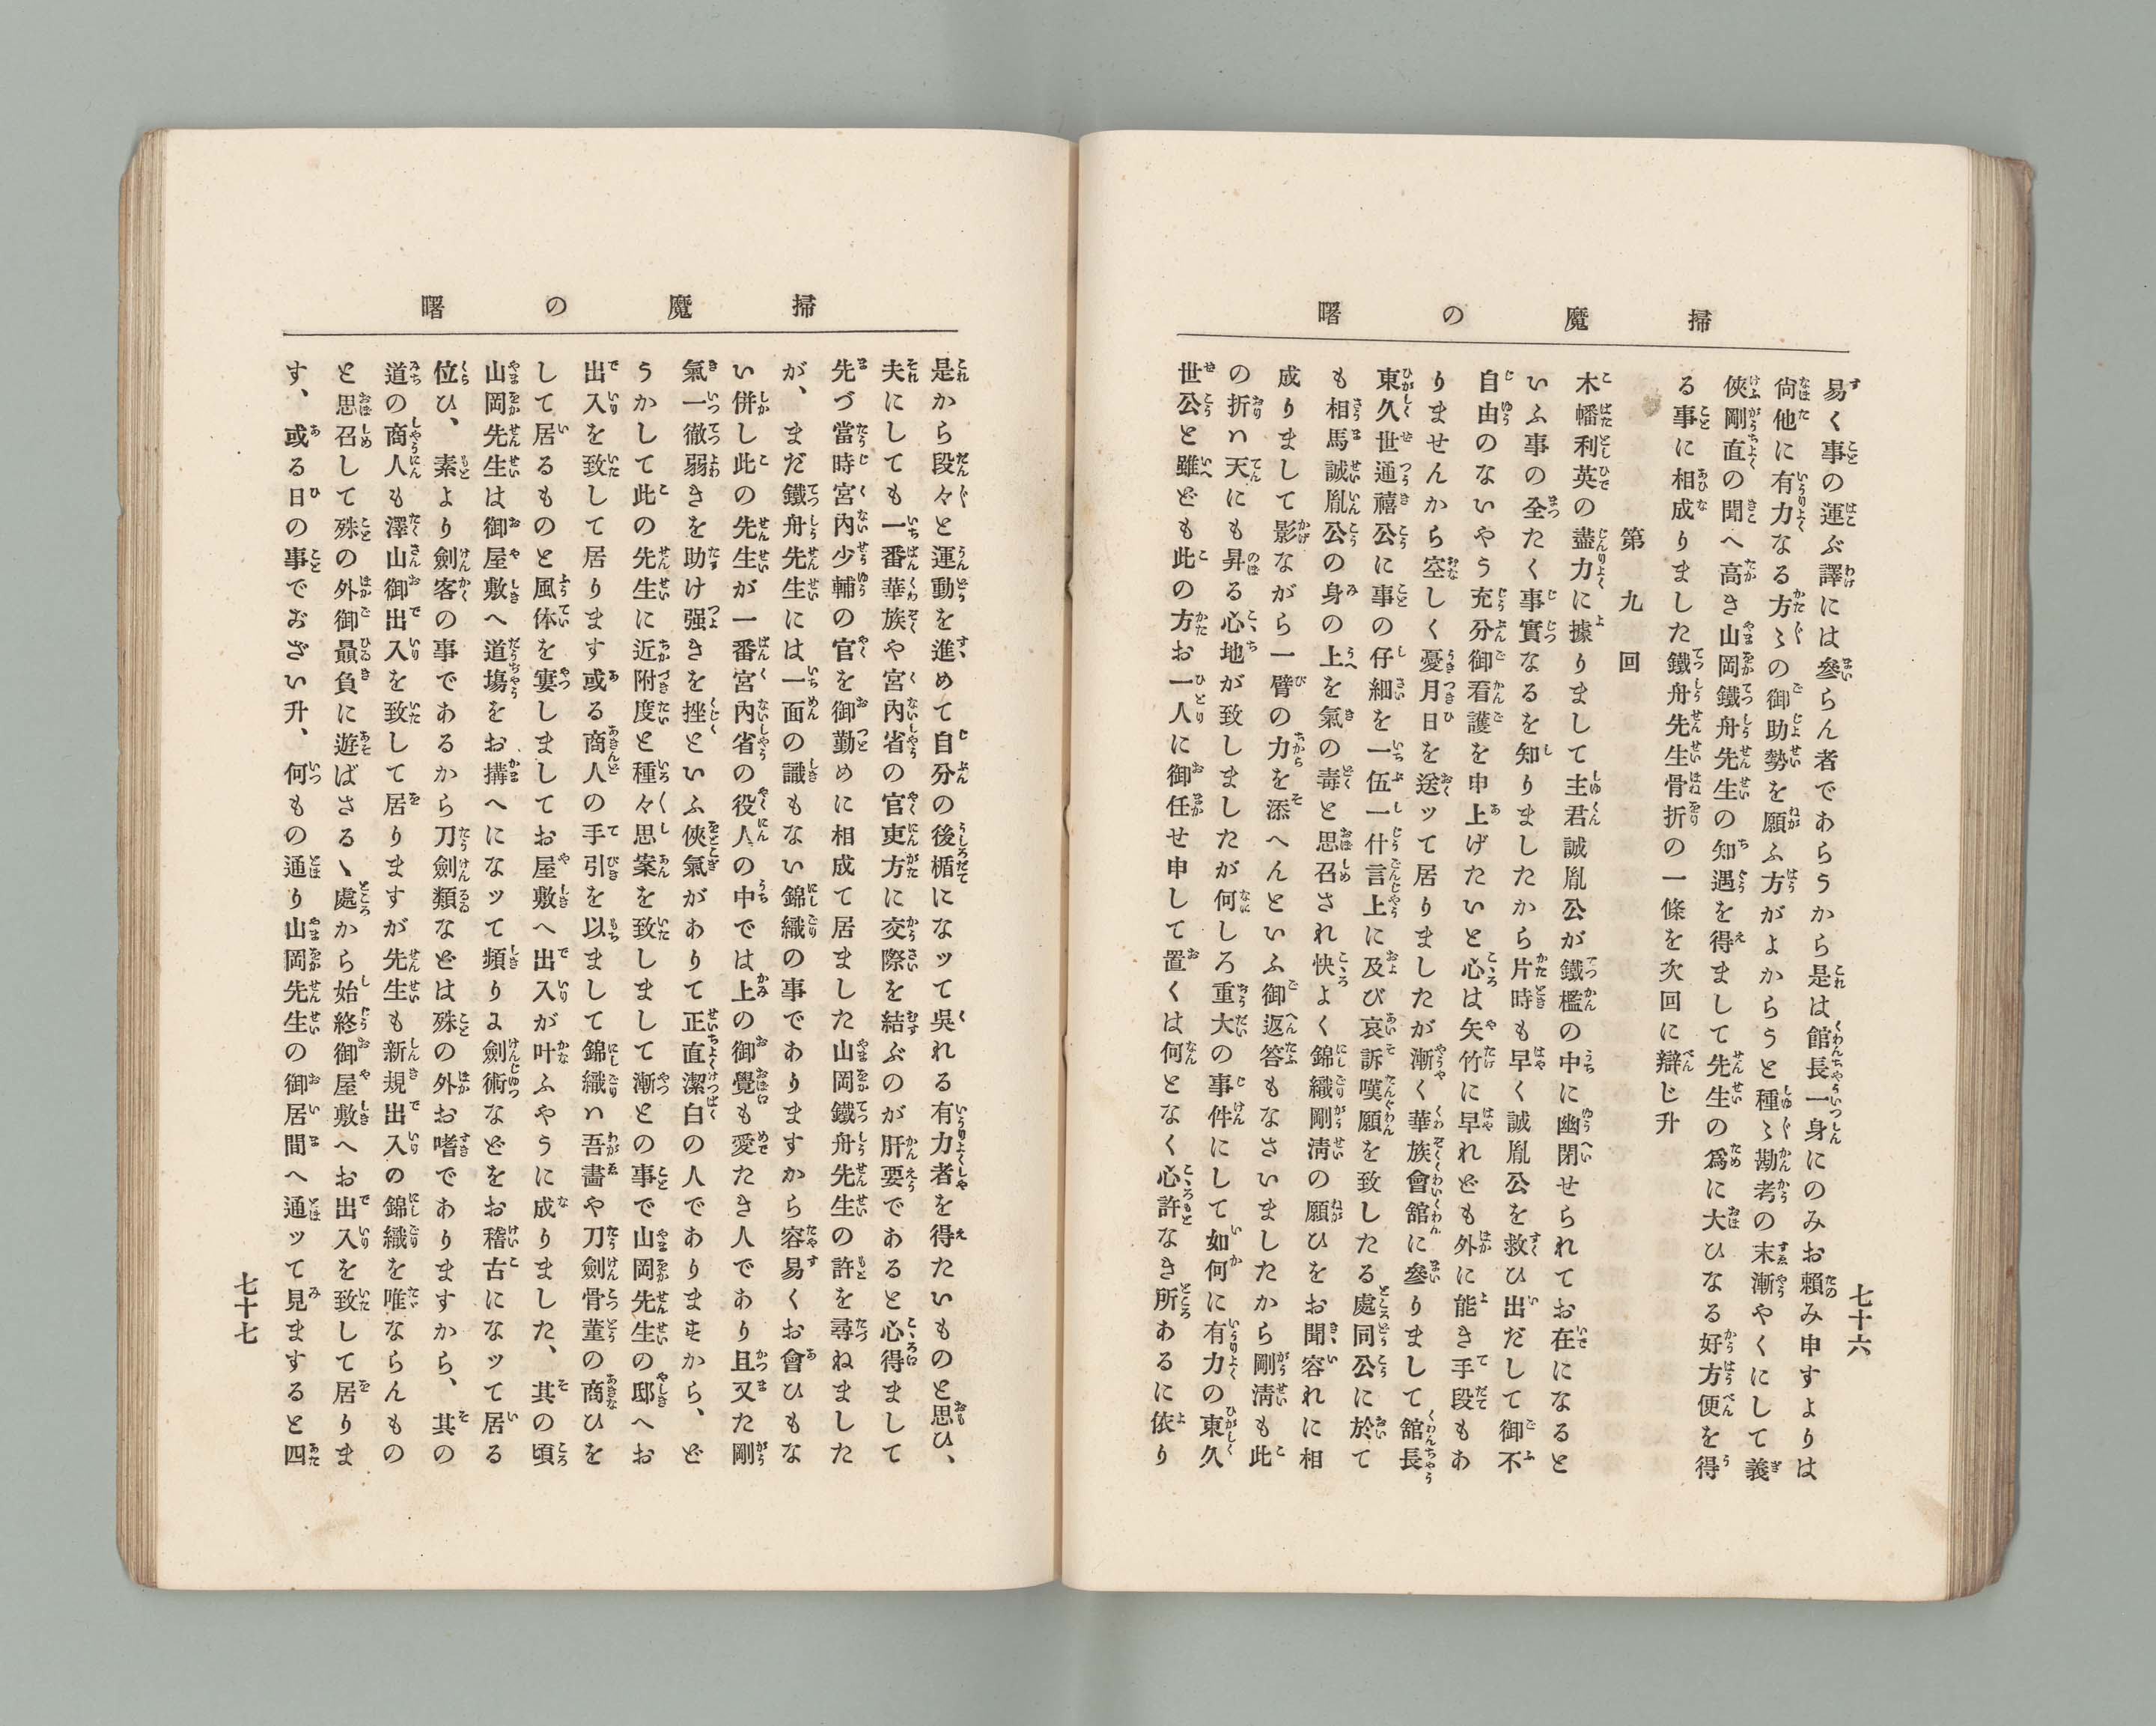 掃魔の曙
易く事の運ぶ譯には參らん者であらうから是は館長一身にのみお頼み申すよりは
尙他に有力なる方〻の御助勢を願ふ方がよからうと種〻勘考の末漸やくにして義
俠剛直の聞へ高き山岡鐵舟先生の知遇を得まして先生の爲に大ひなる好方便を得
る事に相成りました鐵舟先生骨折の一條を次回に辯じ升
第九回
木幡利英の盡力に據りまして主君誠胤公が鐵檻の中に幽閉せられてお在になると
いふ事の全たく事實なるを知りましたから片時も早く誠胤公を救ひ出だして御不
自由のないやう充分御看護を申上げたいと心は矢竹に早れども外に能き手段もあ
りませんから空しく憂月日を送ッて居りましたが漸く華族會舘に參りまして舘長
東久世通禧公に事の仔細を一伍一什言上に及び哀訴嘆願を致したる處同公に於て
も相馬誠胤公の身の上を氣の毒と思召され快よく錦織剛淸の願ひをお聞容れに相
成りまして影ながら一臂の力を添へんといふ御返答もなさいましたから剛淸も此
の折ハ天にも昇る心地が致しましたが何しろ重大の事件にして如何に有力の東久
世公と雖ども此の方お一人に御任せ申して置くは何となく心許なき所あるに依り
七十六
掃魔の曙
是から段々と運動を進めて自分の後楯になッて吳れる有力者を得たいものと思ひ、
夫にしても一番華族や宮內省の官吏方に交際を結ぶのが肝要であると心得まして
先づ當時宮內少輔の官を御勤めに相成て居ました山岡鐵舟先生の許を尋ねました
が、まだ鐵舟先生には一面の識もない錦織の事でありますから容易くお會ひもな
い併し此の先生が一番宮內省の役人の中では上の御覺も愛たき人であり且又た剛
氣一徹弱きを助け强きを挫といふ俠氣がありて正直潔白の人でありますから、ど
うかして此の先生に近附度と種々思案を致しまして漸との事で山岡先生の邸へお
出入を致して居ります或る商人の手引を以まして錦織ハ吾畵や刀劍骨董の商ひを
して居るものと風体を窶しましてお屋敷へ出入が叶ふやうに成りました、其の頃
山岡先生は御屋敷へ道塲をお搆へになッて頻りよ劍術などをお稽古になッて居る
位ひ、素より劍客の事であるから刀劍類などは殊の外お嗜でありますから、其の
道の商人も澤山御出入を致して居りますが先生も新規出入の錦織を唯ならんもの
と思召して殊の外御贔負に遊ばさるゝ處から始終御屋敷へお出入を致して居りま
す、或る日の事でおざい升、何もの通り山岡先生の御居間へ通ッて見ますると四
七十七